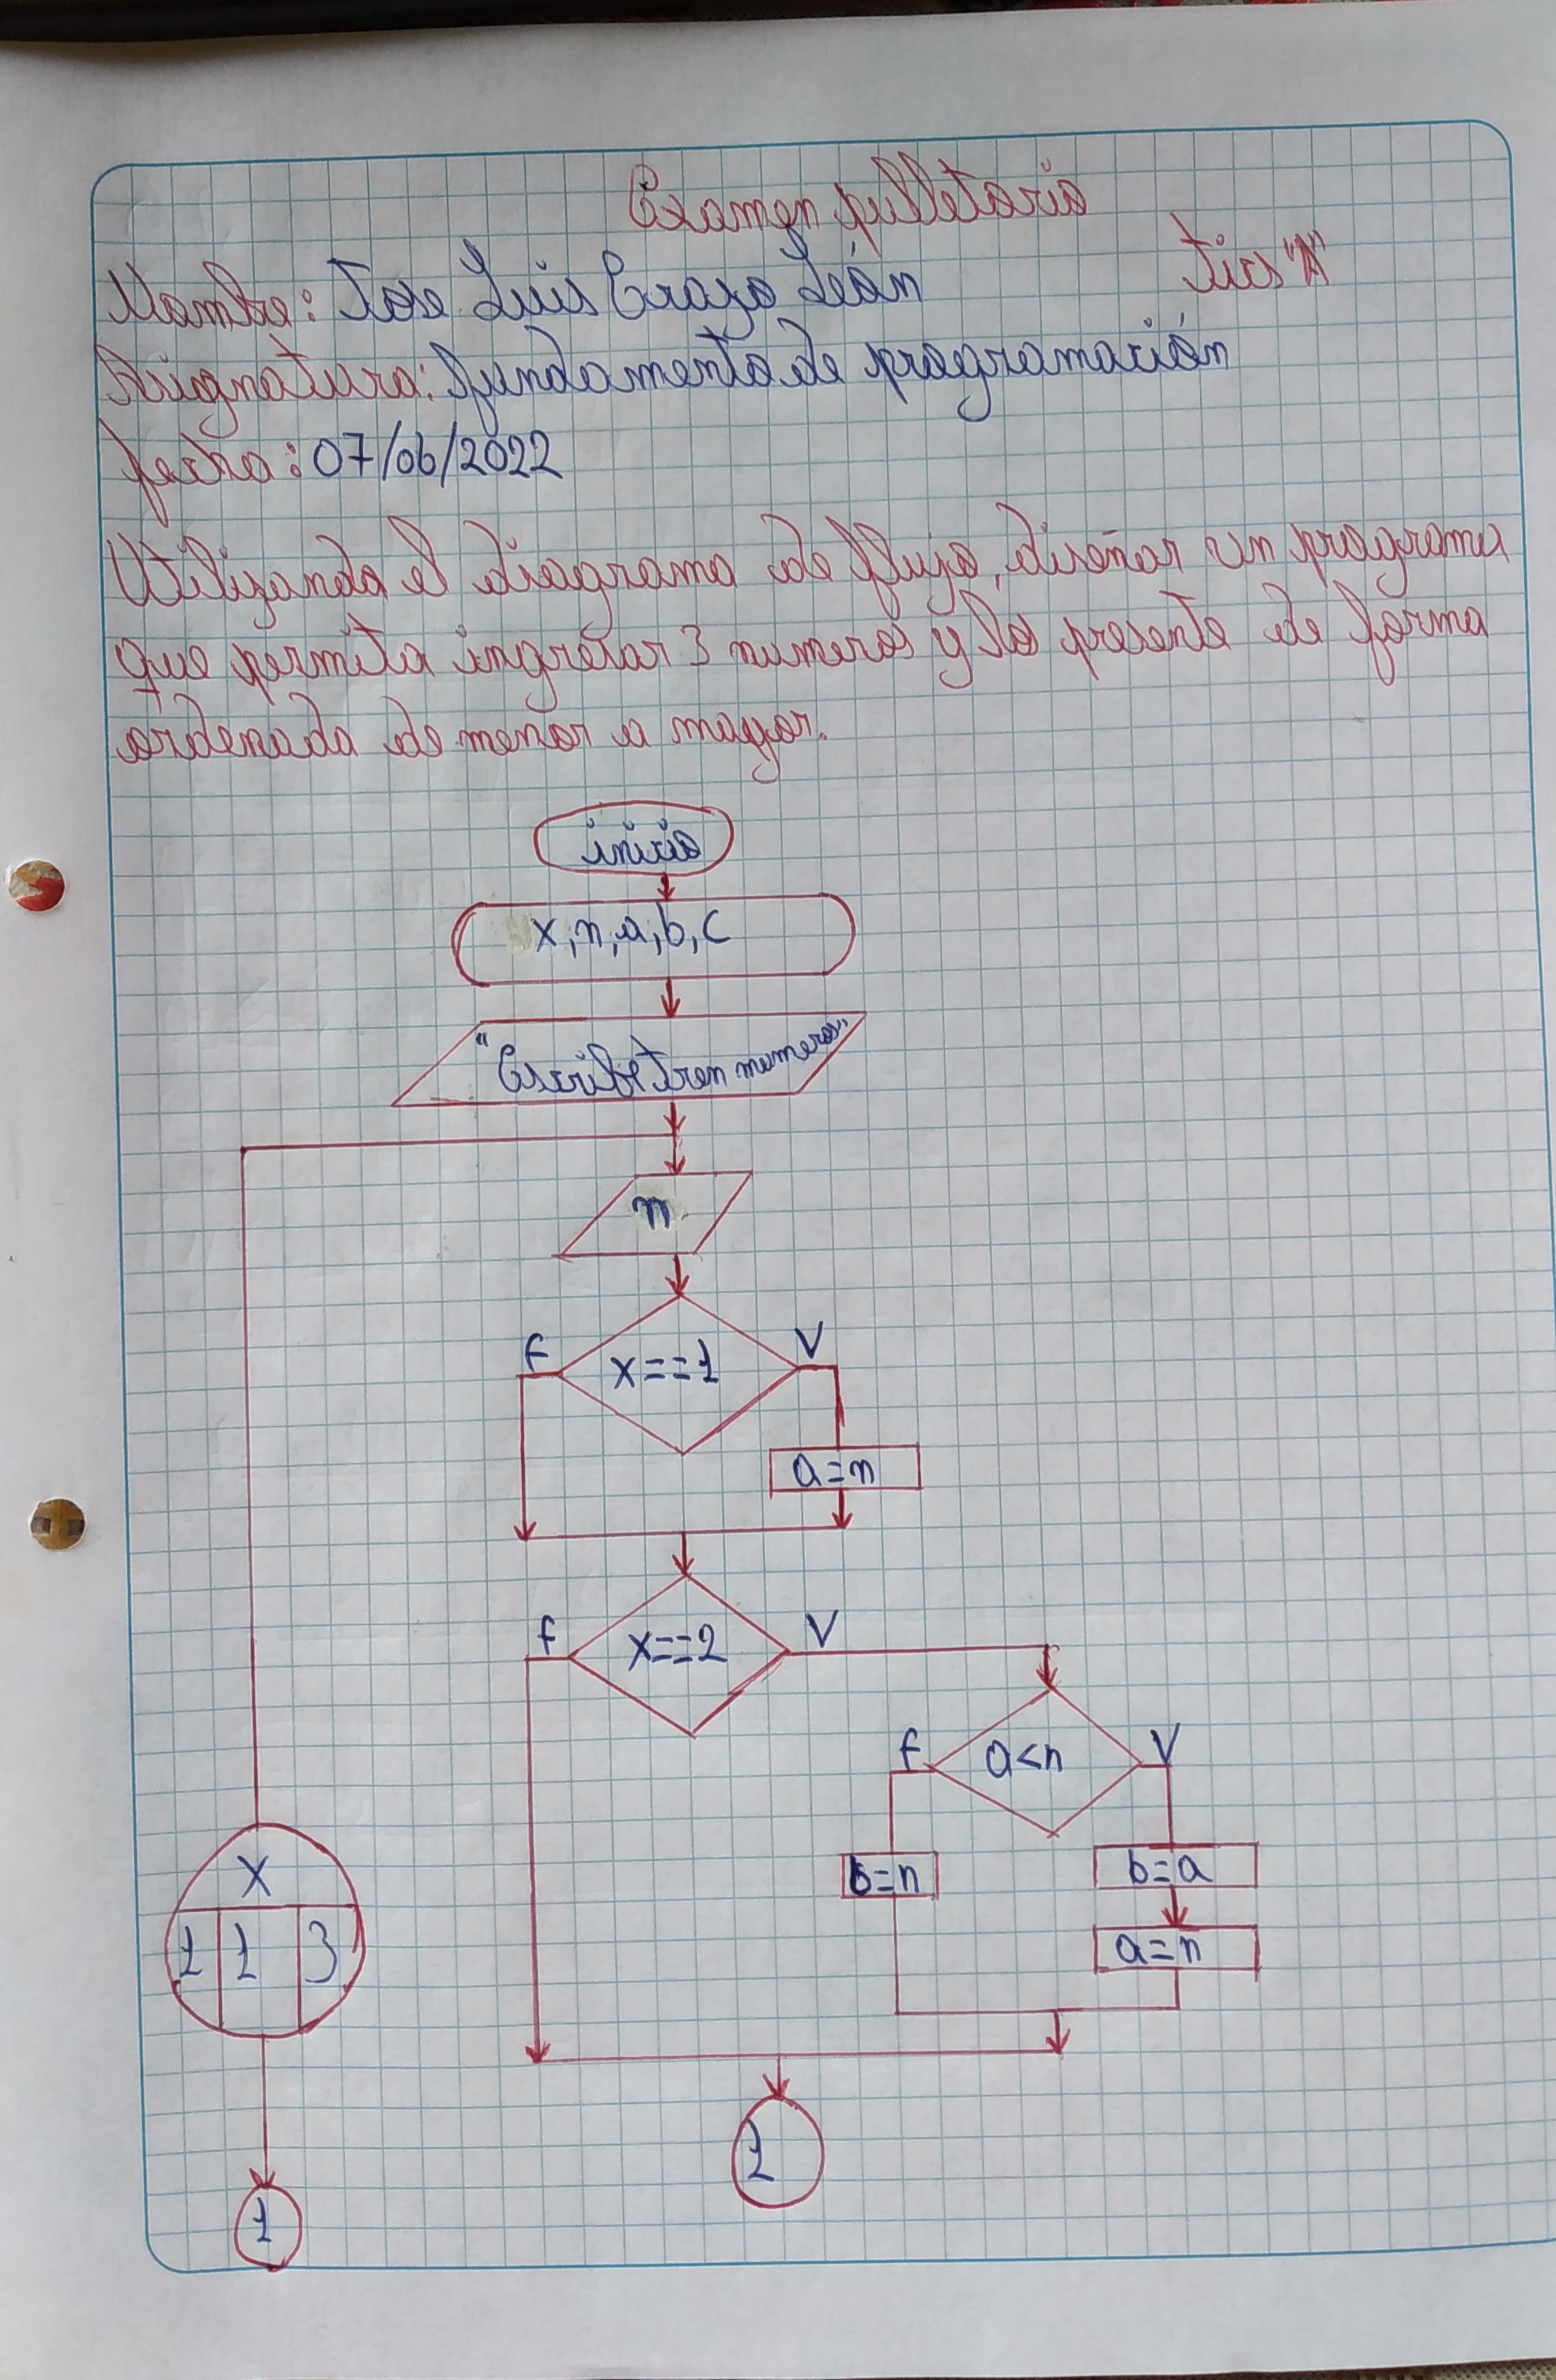 Examen
tics "A"
Nombre: Jose Luis Erazo León
Asignatura: fundamento de programación
fecha: 07/06/2022
Utilizando el diagrama de flujo, diseñar un programa
que permita ingresar 3 numeros y los presente de forma
ordenada de menor a mayor.
inicio
x, n, a, b, c
"Escribe tren numeros"
n
f x==1 V
a=n
f x==2 V
f a<n V
b=n b=a
a=n
x
1 1 3
1
1